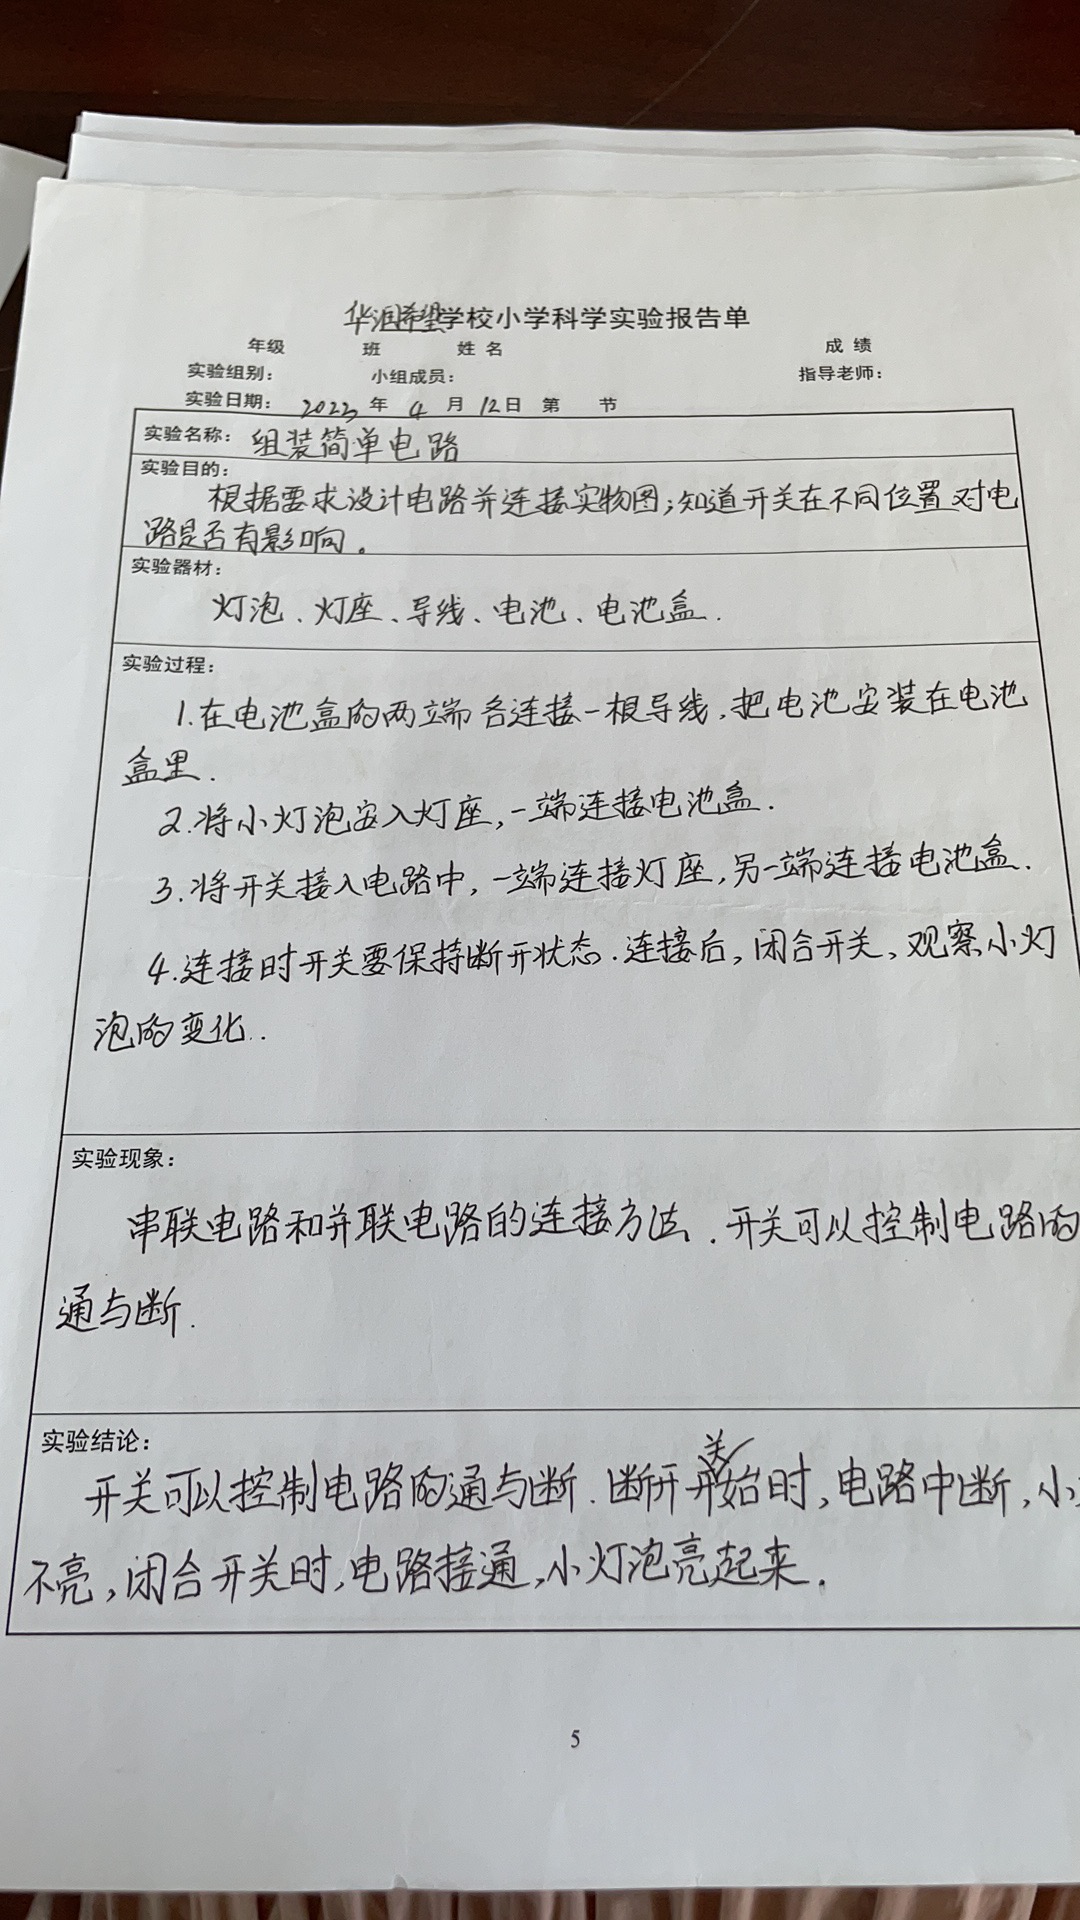 华润希望学校小学科学实验报告单
年级 班 姓名 成绩
实验组别： 小组成员： 指导老师：
实验日期： 2023 年 4 月 12 日 第 节
实验名称： 组装简单电路
实验目的：
根据要求设计电路并连接实物图；知道开关在不同位置对电
路是否有影响。
实验器材：
灯泡、灯座、导线、电池、电池盒.
实验过程：
1.在电池盒的两端各连接一根导线，把电池安装在电池
盒里.
2.将小灯泡安入灯座，一端连接电池盒.
3.将开关接入电路中，一端连接灯座，另一端连接电池盒.
4.连接时开关要保持断开状态.连接后，闭合开关，观察小灯
泡的变化.
实验现象：
串联电路和并联电路的连接方法.开关可以控制电路的
通与断.
实验结论：
关
开关可以控制电路的通与断.断开开始时，电路中断，小
不亮，闭合开关时，电路接通，小灯泡亮起来.
5